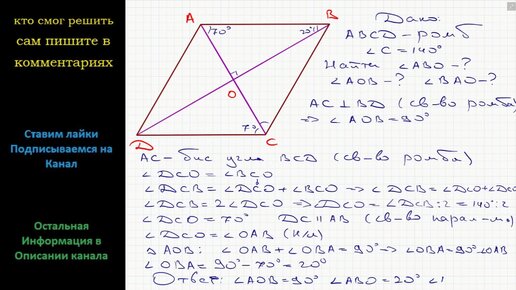 кто смог решить
сам пишите в
комментариях
Ставим лайки
Подписываемся на
Канал
Остальная
Информация в
Описании канала
A
B
70°
20°
O
70
D
C
Дано:
ABCD – ромб
∠C = 140°
Найти ∠ABO – ?
∠AOB – ? ∠BAO – ?
AC ⊥ BD (св-во ромба)
⇒ ∠AOB = 90°
AC – бис угла BCD (св-во ромба)
∠DCO = ∠BCO
∠DCB = ∠DCO + ∠BCO ⇒ ∠DCB = ∠DCO + ∠DCO
∠DCB = 2∠DCO ⇒ ∠DCO = ∠DCB : 2 = 140° : 2
∠DCO = 70° DC || AB (св-во парал-ма)
∠DCO = ∠OAB (н/л)
△ AOB: ∠OAB + ∠OBA = 90° ⇒ ∠OBA = 90° - ∠OAB
∠OBA = 90° - 70° = 20°
Ответ: ∠AOB = 90° ∠ABO = 20°